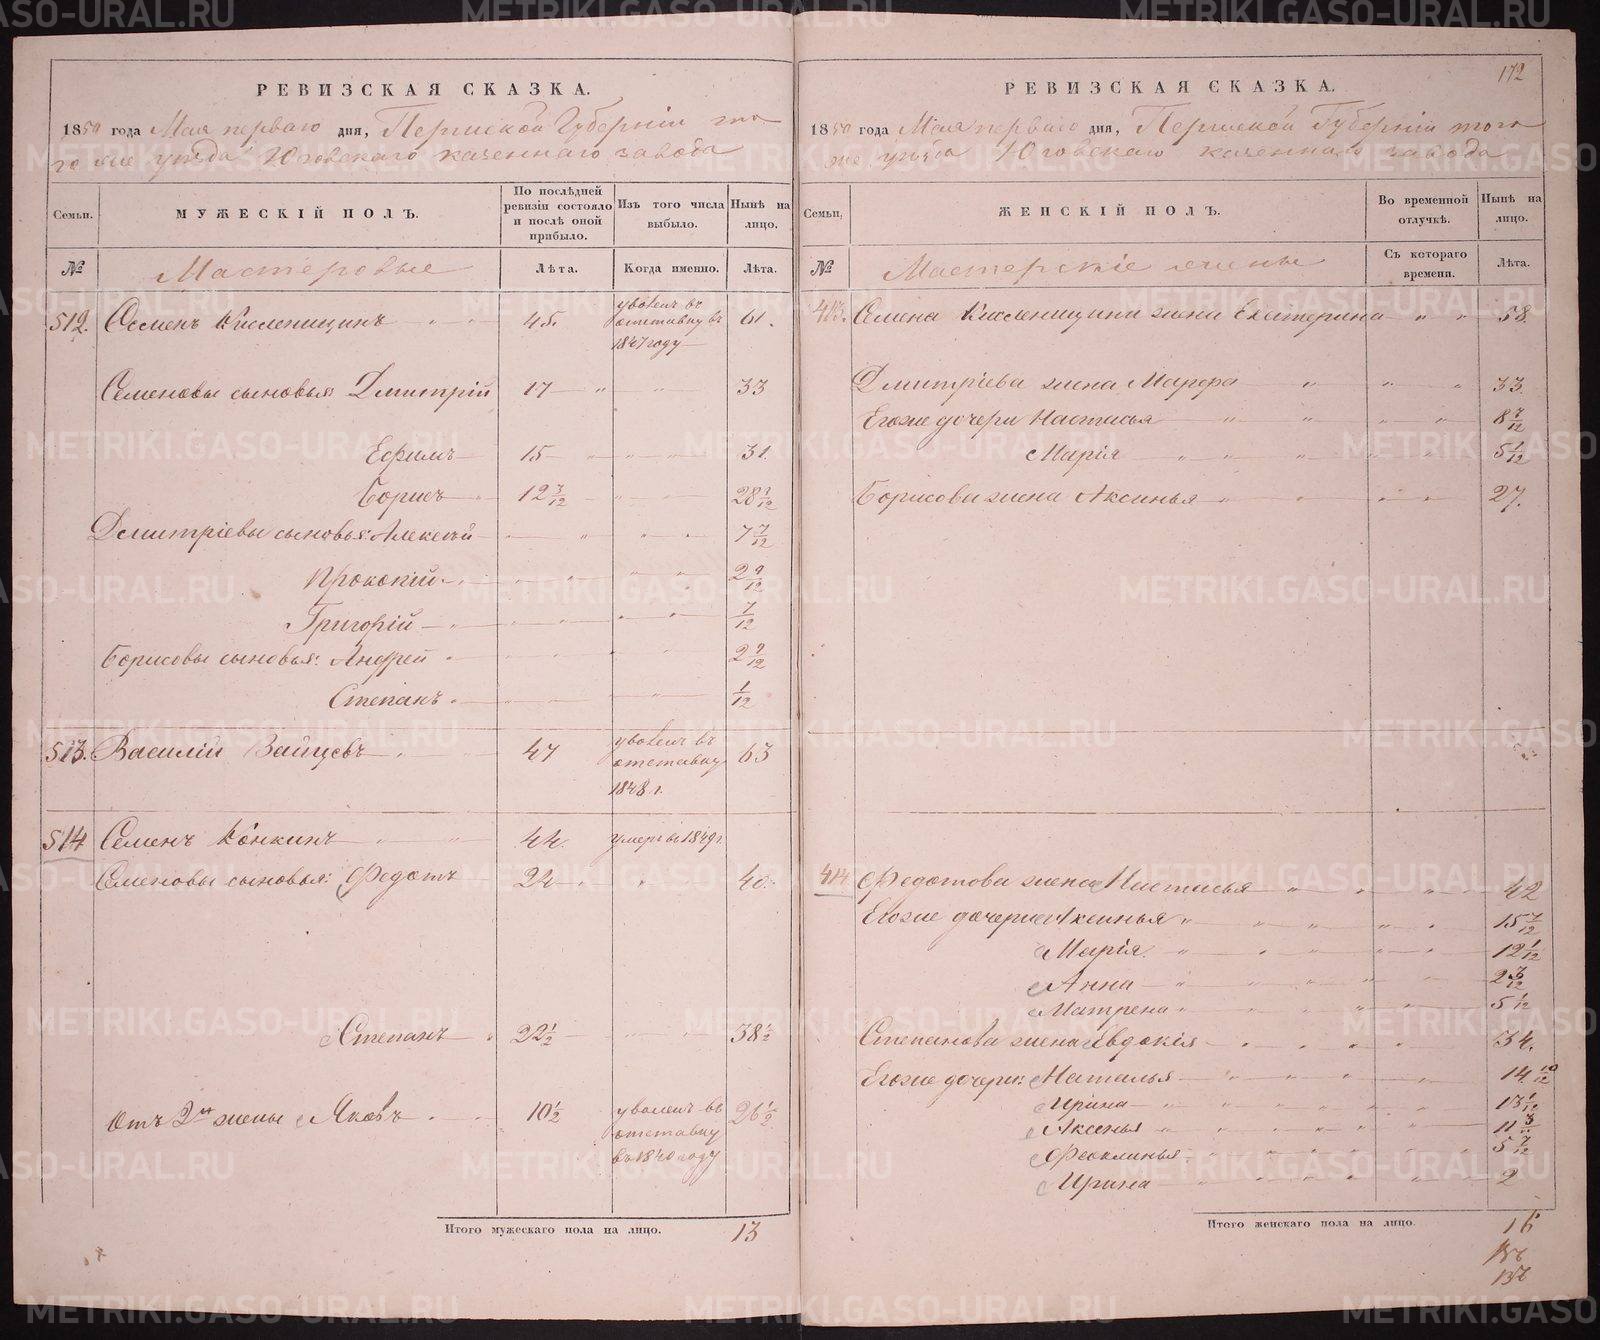 РЕВИЗСКАЯ СКАЗКА.
1850 года Мая перваго дня, Пермской Губерніи то
го же уѣзда Юговскаго казеннаго завода
Семьи.
МУЖЕСКІЙ ПОЛЪ.
По послѣдней ревизіи состояло и послѣ оной прибыло.
Изъ того числа выбыло.
Нынѣ на лицо.
№
Мастеровые
Лѣта.
Когда именно.
Лѣта.
512. Семенъ Кисленицинъ 45. уволенъ въ отставку въ 1847 году 61.
Семеновы сыновья: Дмитрій 17 33
Ефимъ 15 31.
Борисъ 12 3/12 28 3/12
Дмитріевы сыновья: Алексѣй 7 7/12
Прокопій 2 9/12
Григорій 7/12
Борисовы сыновья: Андрей 2 9/12
Степанъ 1/12
513. Василій Зайцевъ 47 уволенъ въ отставку 1848 г. 63
514 Семенъ Конкинъ 44. умеръ въ 1849 г.
Семеновы сыновья: Федотъ 24 40.
Степанъ 22 1/2 38 1/2
Отъ 2й жены Яковъ 10 1/2 уволенъ въ отставку въ 1840 году 26 1/2
Итого мужескаго пола на лицо. 13
172
РЕВИЗСКАЯ СКАЗКА.
1850 года Мая перваго дня, Пермской Губерніи того
же уѣзда Юговскаго казеннаго завода
Семьи.
ЖЕНСКІЙ ПОЛЪ.
Во временной отлучкѣ.
Нынѣ на лицо.
№
Мастерскіе жены
Съ котораго времени.
Лѣта.
413. Семена Кисленицина жена Екатерина 58.
Дмитріева жена Марфа 33.
Его же дочери Настасья 8 7/12
Марія 5 1/12
Борисова жена Аксинья 27.
414 Федотова жена Настасья 42
Его же дочери Аксинья 15 7/12
Марія 12 1/12
Анна 2 3/12
Матрена 5 1/12
Степанова жена Евдокія 34.
Его же дочери: Наталья 14 10/12
Ирина 13 1/12
Аксинья 11
Феоклинья 5 7/12
Ирина 2
Итого женскаго пола на лицо. 16
METRIKI.GASO-URAL.RU